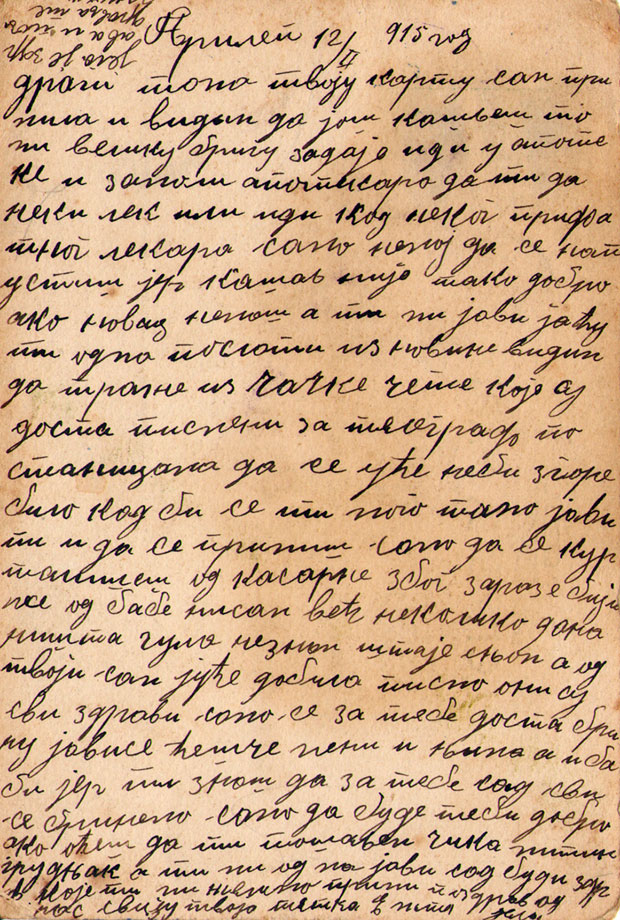 Прилеп 12/II 915 год
драги тома твоју карту сам при
мила и видим да још кашљеш то
ми велику бригу задаје иди у апоте
ке и замоли апотикара да ти да
неки лек или иди код некогприва
тног лекара само немој да се нап
устиш јер кашаљ није тако добро
ако новац немаш а ти ми јави јаћу
ти одма послати из новине видим
да траже из Чачке чете које су
доста писмени за телеграфо по
станицама да се уче неби згоре
било кад би се ти мого тамо јави
ти и да се примиш само да се кур
талишеш од касарне због заразе
од бабе нисам већ неколико дана
ништа чула незнам штаје с њом а од
твоји сам јуче добила писмо они су
сви здрави само се за тебе доста бри
ну јависе ћешче мени и њима а и ба
би јер ти знаш да за тебе сад сви
се бринемо само да буде теби добро
ако оћеш да ти пошаљем чика
грудњак а ти ми одма јави сад буди здр
поздрав од
нас свију твоја тетка